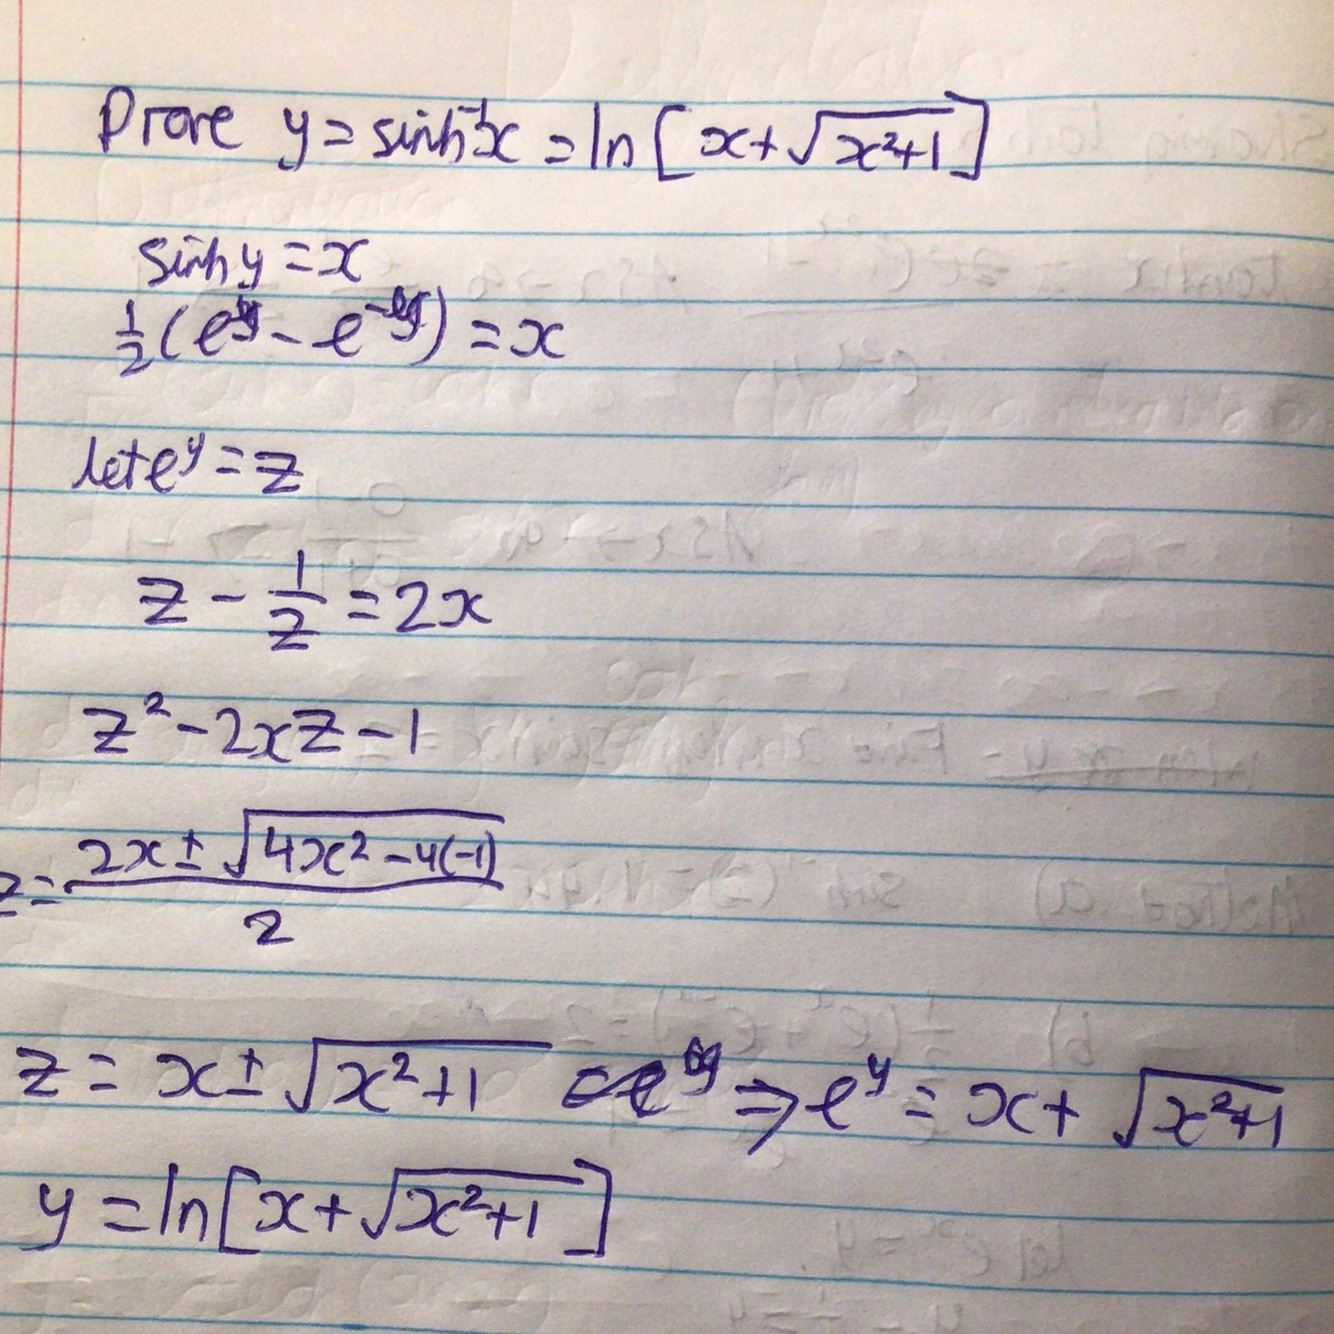 Prove y = sinh⁻¹x = ln[x+√(x²+1)]
sinh y = x
½(e^y - e^-y) = x
let e^y = z
z - 1/z = 2x
z² - 2xz - 1
z = (2x ± √(4x² - 4(-1)))/2
z = x ± √(x²+1) ⇒ e^y = x + √(x²+1)
y = ln[x+√(x²+1)]